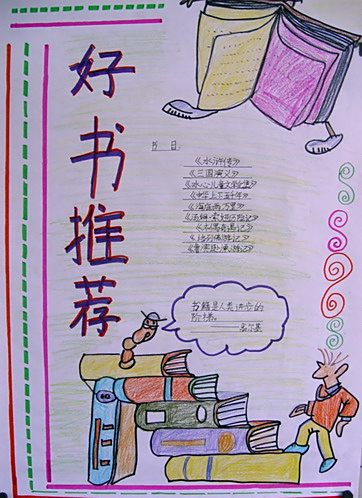 好书推荐
书 目:
《水浒传》
《三国演义》
《冰心儿童文学全集》
《中华上下五千年》
《海底两万里》
《汤姆·索亚历险记》
《木偶奇遇记》
《格列佛游记》
《鲁滨逊漂流记》
书籍是人类进步的
阶梯。
——高尔基